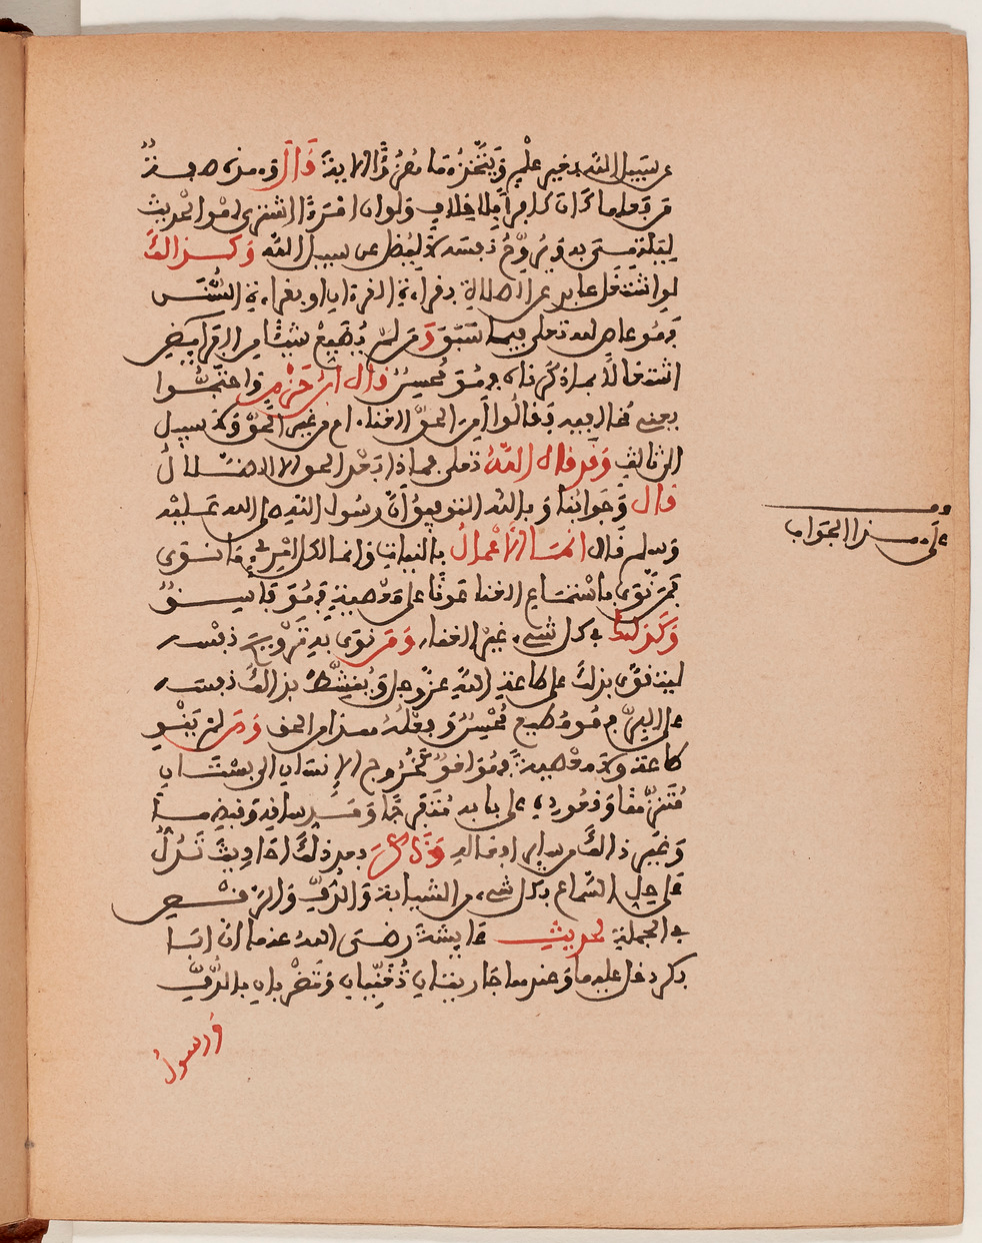 عن سبيل الله بغير علم ويتخذها هزؤا الاية قال وهذه صفة
من فعلها كان كافرا بلا خلاف ولو ان امرءا اشترى لهو الحديث
ليلتهي به ويروح نفسه لا ليضل عن سبيل الله وكذالك
لو اشتغل عابد عن الصلاة بقراءة القرءان او بقراءة السنن
فهو عاص لله تعلى فيما سبق ومن لم يضيع شيئا من الفرائض
اشتغالا بما ذكرناه فهو محسن قال ابن حزم واحتجوا
فقالوا امن الحق الغناء ام من غير الحق ولا سبيل
الى ثالث وقد قال الله تعلى فماذا بعد الحق الا الضلال
قال وجوابنا وبالله التوفيق أن رسول الله صلى الله عليه
وسلم قال انما الاعمال بالنيات وانما لكل امرئ ما نوى
فمن نوى باستماع الغنا عونا على معصية فهو فاسق
وكذلك في كل شيء غير الغناء ومن نوى به ترويح نفسه
ليتقوى بذلك على طاعة الله عز وجل وينشط بذالك نفسه
على البر فهو مطيع محسن وفعله هذا من الحق ومن لم ينو
طاعة ولا معصية فهو لغو كخروج الإنسان الى بستان
متنزها وقعوده على باب متفرجا ومد ساقه وقبضها
وغير ذالك من سائر افعاله وذكر بعد ذلك احاديث تدل
على حل السماع بكل شيء من الشبابة والدف والزفن
في الجملة لحديث عايشة رضي الله عنها ان ابا
بكر دخل عليها وعندها جاريتان تغنيان وتضربان بالدف
ورسول
على هذا الجواب